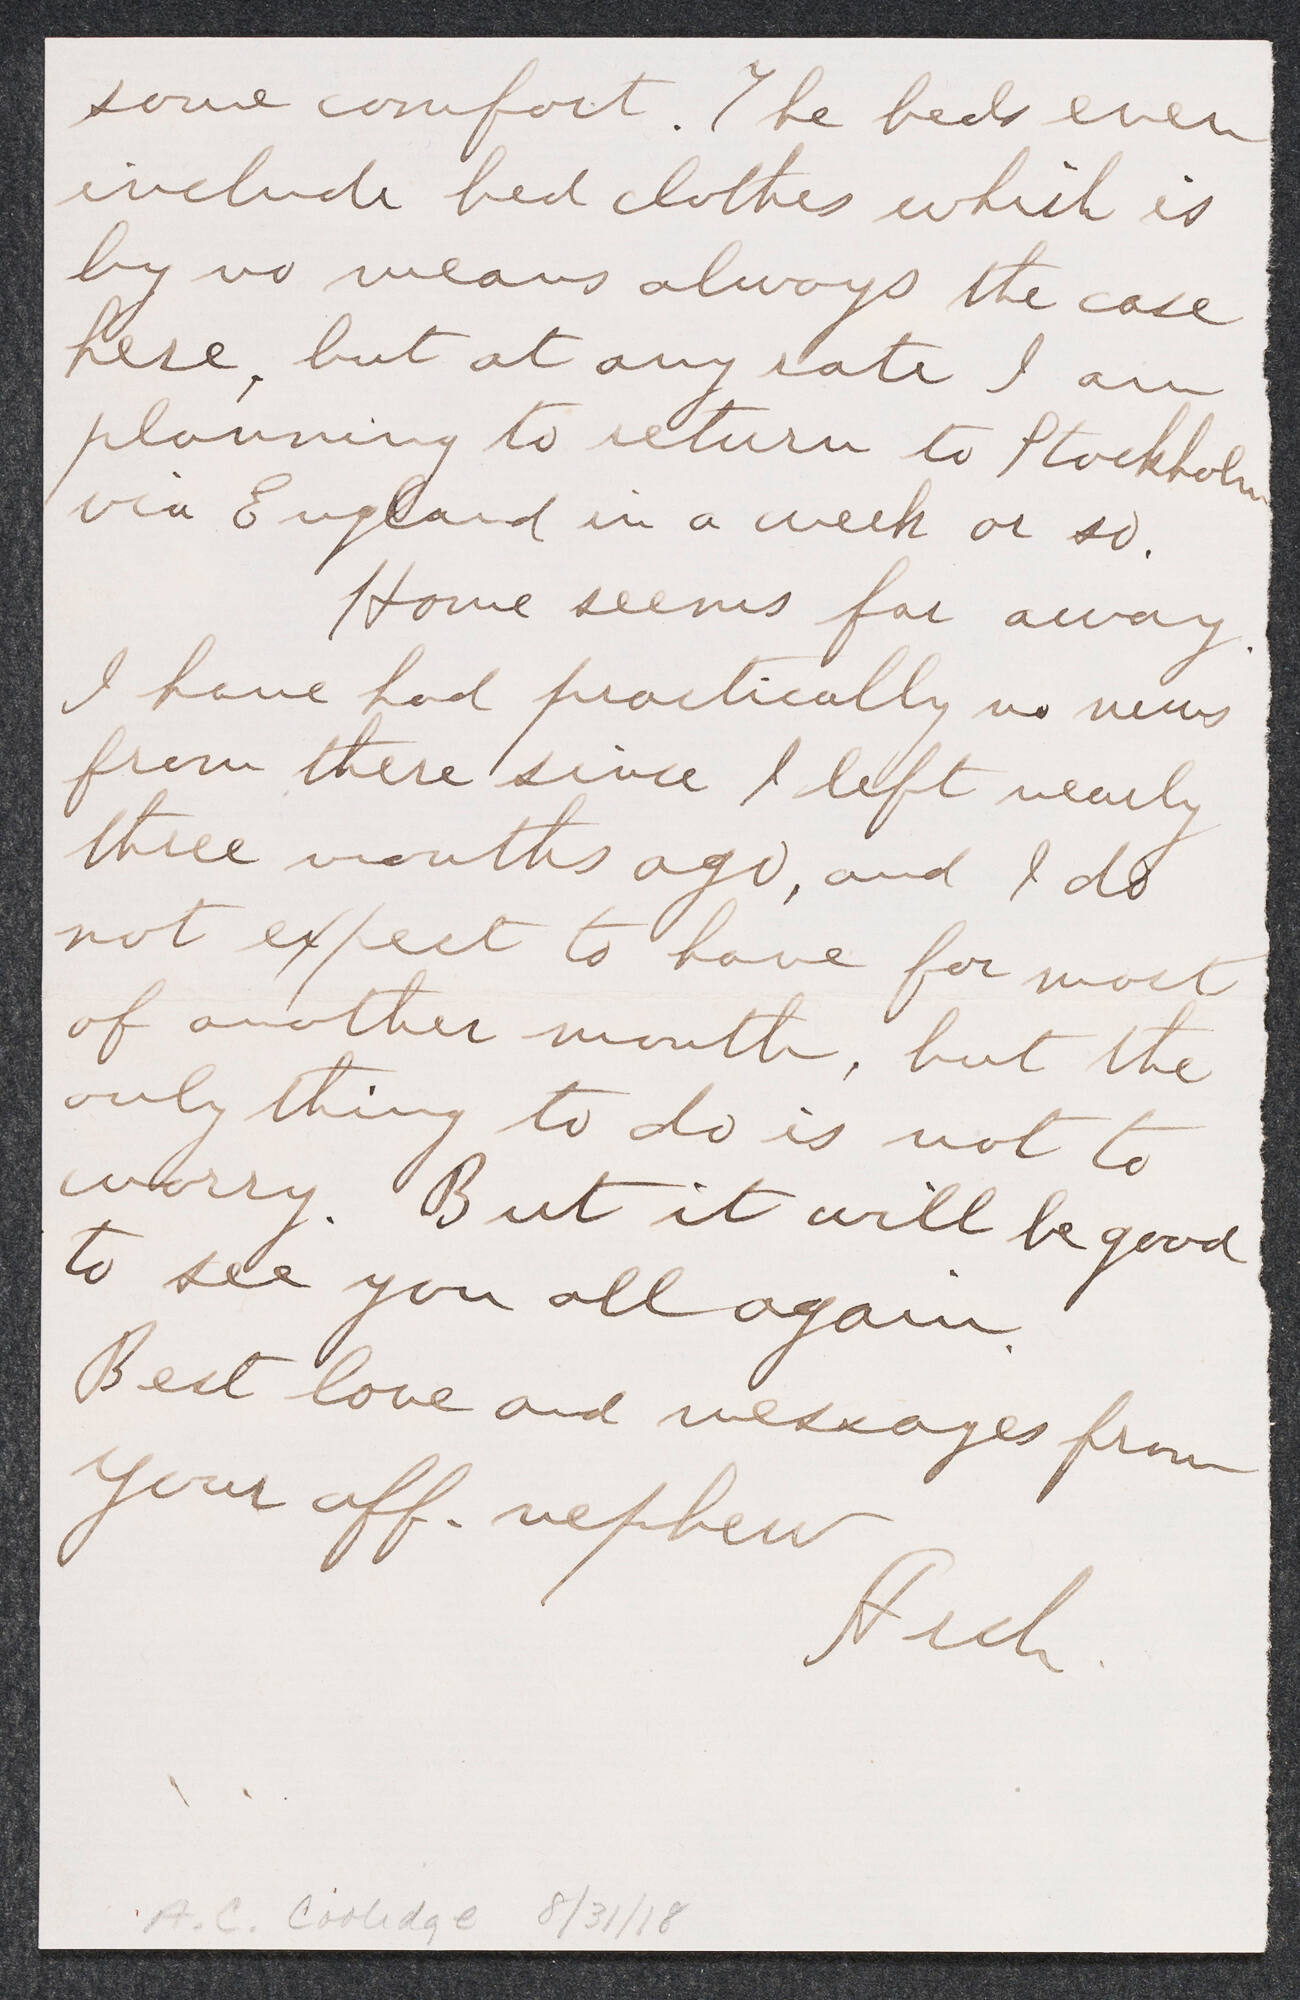 some comfort. The beds even
include bed clothes which is
by no means always the case
here, but at any rate I am
planning to return to Stockholm
via England in a week or so.
Home seems far away.
I have had practically no news
from there since I left nearly
three months ago, and I do
not expect to have for most
of another month, but the
only thing to do is not to
worry. But it will be good
to see you all again.
Best love and messages from
your aff. nephew
Arch.
A.C. Coolidge 8/31/18